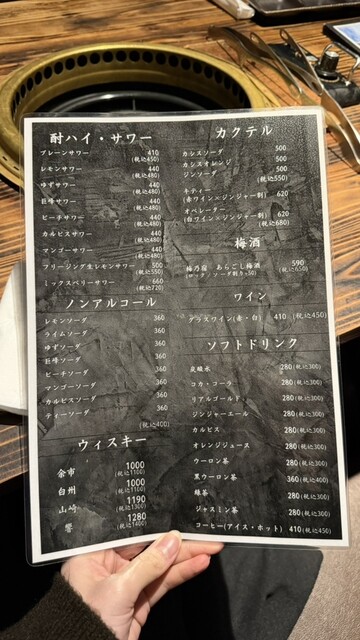 酎ハイ・サワー
プレーンサワー 410
(税込450)
レモンサワー 440
(税込480)
ゆずサワー 440
(税込480)
巨峰サワー 440
(税込480)
ピーチサワー 440
(税込480)
カルピスサワー 440
(税込480)
マンゴーサワー 440
(税込480)
フリージング生レモンサワー 500
(税込550)
ミックスベリーサワー 660
(税込720)
ノンアルコール
レモンソーダ 360
ライムソーダ 360
ゆずソーダ 360
巨峰ソーダ 360
ピーチソーダ 360
マンゴーソーダ 360
カルピスソーダ 360
ティーソーダ 360
(税込400)
ウィスキー
余市 1000
(税込1100)
白州 1000
(税込1100)
山崎 1190
(税込1300)
響 1280
(税込1400)
カクテル
カシスソーダ 500
カシスオレンジ 500
ジンソーダ 500
(税込550)
キティー
(赤ワイン×ジンジャー割) 620
オペレーター
(白ワイン×ジンジャー割) 620
(税込680)
梅酒
梅乃宿 あらごし梅酒 590
(ロック ソーダ割り+50) (税込650)
ワイン
グラスワイン(赤・白) 410(税込450)
ソフトドリンク
炭酸水 280(税込300)
コカ・コーラ 280(税込300)
リアルゴールド 280(税込300)
ジンジャーエール 280(税込300)
カルピス 280(税込300)
オレンジジュース 280(税込300)
ウーロン茶 280(税込300)
黒ウーロン茶 360(税込400)
緑茶 280(税込300)
ジャスミン茶 280(税込300)
コーヒー(アイス・ホット) 410(税込450)